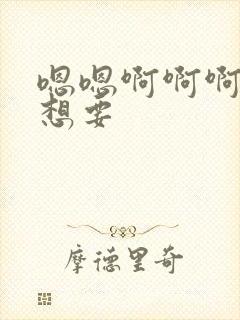 嗯嗯啊啊啊
想要
摩德里奇